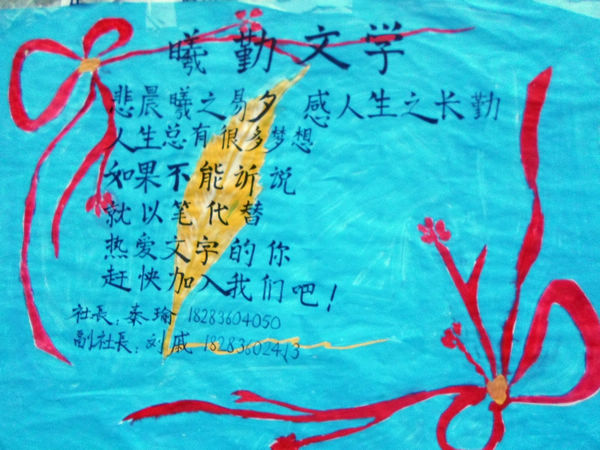 曦勤文学
悲晨曦之易夕 感人生之长勤
人生总有很多梦想
如果不能诉说
就以笔代替
热爱文字的你
赶快加入我们吧！
社长：秦瑜 18283604050
副社长：刘戚 18283602413